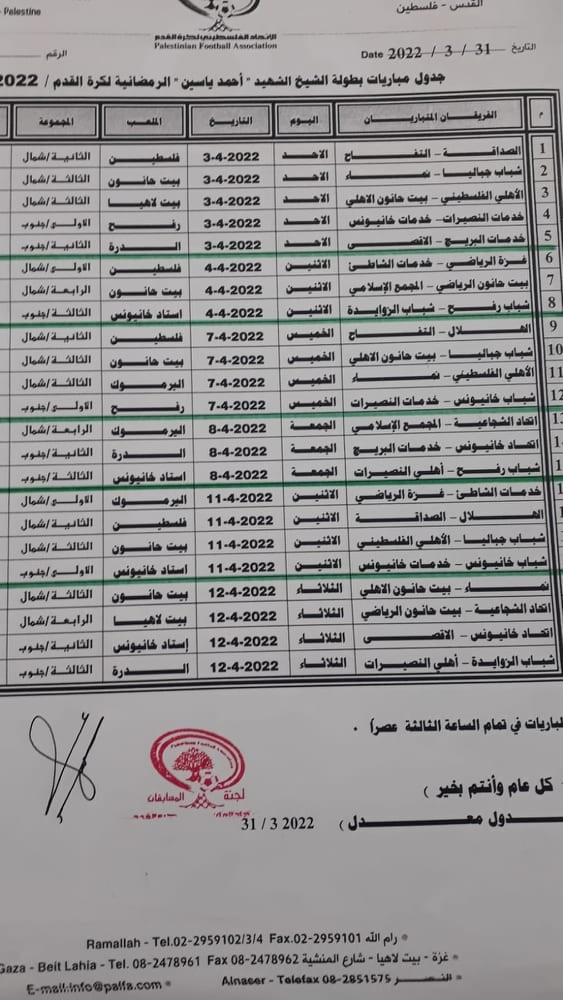 - Palestine
القدس - فلسطين
الإتحاد الفلسطيني لكرة القدم
Palestinian Football Association
التاريخ 31 / 3 / 2022 Date
الرقم
جدول مباريات بطولة الشيخ الشهيد "أحمد ياسين" الرمضانية لكرة القدم / 2022
م الفريقان المتباريان اليوم التاريخ الملعب المجموعة
1 الصداقة - التفاح الاحد 3-4-2022 فلسطين الثانية/شمال
2 شباب جباليا - نماء الاحد 3-4-2022 بيت حانون الثالثة/شمال
3 الأهلي الفلسطيني - بيت حانون الاهلي الاحد 3-4-2022 بيت لاهيا الثالثة/شمال
4 خدمات النصيرات - خدمات خانيونس الاحد 3-4-2022 رفح الاولى/جنوب
5 خدمات البريج - الاقصى الاحد 3-4-2022 الدرة الثانية/جنوب
6 غزة الرياضي - خدمات الشاطئ الاثنين 4-4-2022 فلسطين الاولى/شمال
7 بيت حانون الرياضي - المجمع الإسلامي الاثنين 4-4-2022 بيت حانون الرابعة/شمال
8 شباب رفح - شباب الزوايدة الاثنين 4-4-2022 استاد خانيونس الثالثة/جنوب
9 الهلال - التفاح الخميس 7-4-2022 فلسطين الثانية/شمال
10 شباب جباليا - بيت حانون الاهلي الخميس 7-4-2022 بيت حانون الثالثة/شمال
11 الأهلي الفلسطيني - نماء الخميس 7-4-2022 اليرموك الثالثة/شمال
12 شباب خانيونس - خدمات النصيرات الخميس 7-4-2022 رفح الاولى/جنوب
1 اتحاد الشجاعية - المجمع الإسلامي الجمعة 8-4-2022 اليرموك الرابعة/شمال
1 اتحاد خانيونس - خدمات البريج الجمعة 8-4-2022 الدرة الثانية/جنوب
1 شباب رفح - أهلي النصيرات الجمعة 8-4-2022 استاد خانيونس الثالثة/جنوب
1 خدمات الشاطئ - غزة الرياضي الاثنين 11-4-2022 اليرموك الاولى/شمال
1 الهلال - الصداقة الاثنين 11-4-2022 فلسطين الثانية/شمال
شباب جباليا - الأهلي الفلسطيني الاثنين 11-4-2022 بيت حانون الثالثة/شمال
شباب خانيونس - خدمات خانيونس الاثنين 11-4-2022 استاد خانيونس الاولى/جنوب
نماء - بيت حانون الاهلي الثلاثاء 12-4-2022 بيت حانون الثالثة/شمال
اتحاد الشجاعية - بيت حانون الرياضي الثلاثاء 12-4-2022 بيت لاهيا الرابعة/شمال
اتحاد خانيونس - الاقصى الثلاثاء 12-4-2022 إستاد خانيونس الثانية/جنوب
شباب الزوايدة - أهلي النصيرات الثلاثاء 12-4-2022 الدرة الثالثة/جنوب
لباريات في تمام الساعة الثالثة عصراً .
لجنة المسابقات
كل عام وأنتم بخير )
دول معدل ) 31 / 3 2022
Ramallah - Tel.02-2959102/3/4 Fax.02-2959101 رام الله
Gaza - Beit Lahia - Tel. 08-2478961 Fax 08-2478962 غزة - بيت لاهيا - شارع المنشية
E-mail:info@palfa.com Alnaser - Telefax 08-2851575 النصر